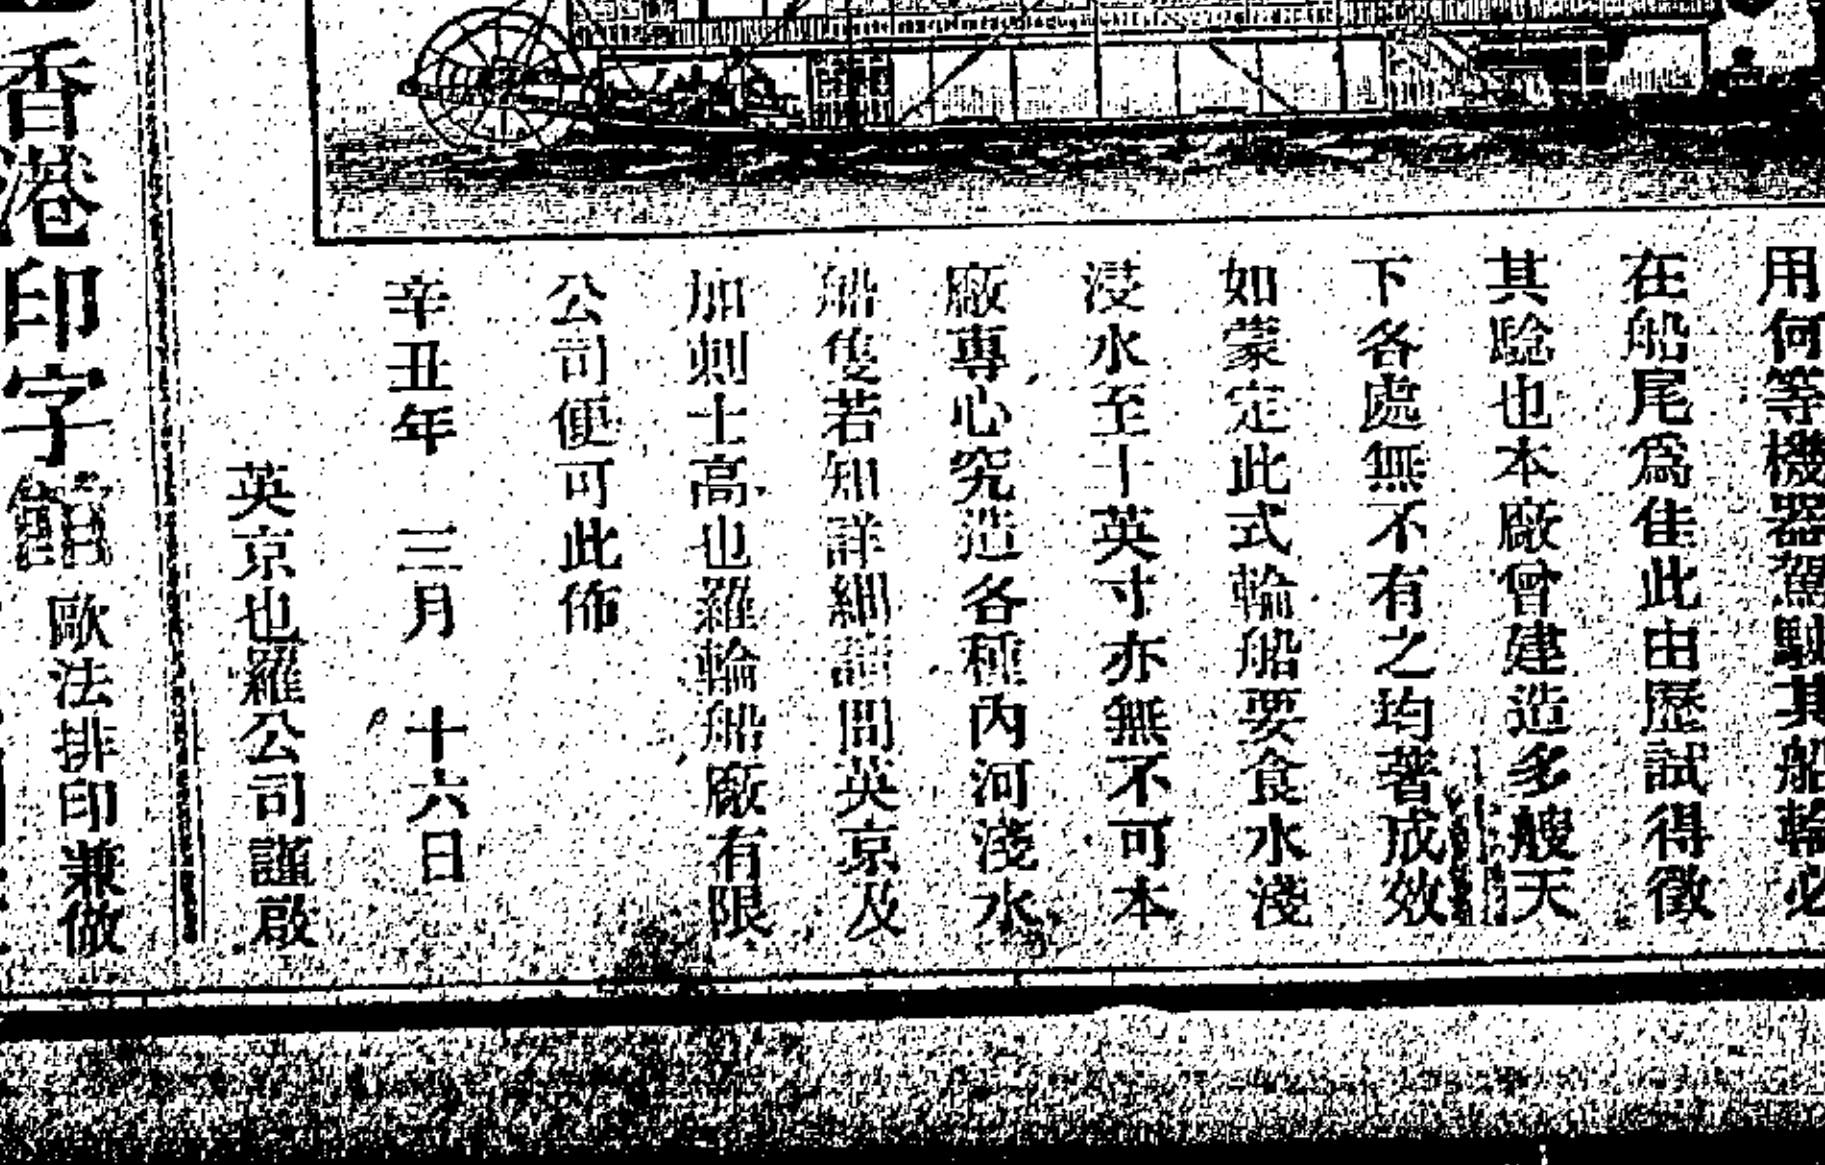 用何等機器駕駛其船輪必
在船尾為佳此由歷試得徵
其騐也本廠曾建造多艘天
下各處無不有之均著成效
如蒙定此式輪船要食水淺
浸水至十英寸亦無不可本
廠專心究造各種內河淺水
船隻若知詳細請問英京及
加剌士高也羅輪船廠有限
公司便可此佈
辛丑年 三月 十六日
英京也羅公司謹啟
香港印字館
歐法排印兼做